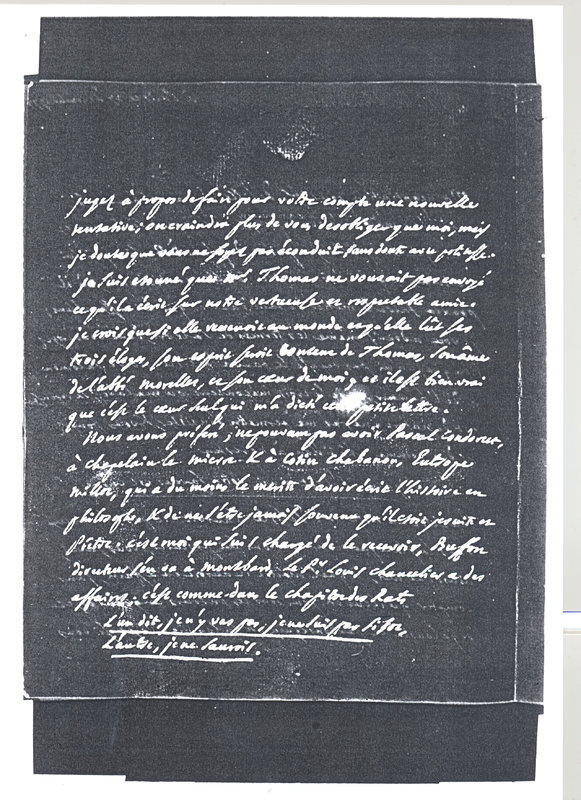 jugez à propos de faire pour votre compte une nouvelle
tentative, on craindra plus de vous desobliger que moi, mais
je doute que vous ne soyez pas éconduit sans doute avec politesse.
je suis etonné que M. Thomas ne vous ait pas envoyé
ce qu'il a écrit sur notre vertueuse et respectable amie.
je crois que si elle revenoit au monde et qu'elle lût ses
trois éloges, son esprit seroit content de Thomas, son âme
de l'abbé Morellet, et son cœur de moi, et il est bien vrai
que c'est le cœur seul qui m'a dicté cette petite lettre.
Nous avons préféré, ne pouvant pas avoir Pascal Condorcet,
à Chapelain le Mierre & à Cotin Chabanon, Eutrope
Millot, qui a du moins le merite d'avoir écrit l'histoire en
philosophe, & de ne s'être jamais souvenu qu'il étoit jesuite et
Prêtre. c'est moi qui suis chargé de le recevoir, Buffon
directeur s'en va à Montbard, le Pr. Louis chancelier a des
affaires. c'est comme dans le chapitre des Rats
L'un dit, je n'y vas pas, je ne suis pas si sot,
L'autre, je ne saurois.